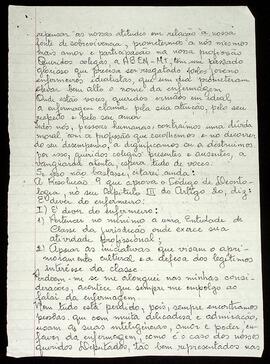 repensar as nossas atitudes em relação a nossa
fonte de sobrevivência, prometemos a nós mesmos
mais amor e participação na nossa profissão
Queridos colegas, a ABEN-MT, tem um passado
glorioso que precisa ser resgatado pelos jovens
enfermeiros idealistas, que um dia prometeram
elevar bem alto o nome da enfermagem
Onde estão vocês, queridos irmãos em ideal,
a enfermagem clama pela sua atuação, pelo seu
respeito e pelo seu amor
Todos nós, pessoas humanas, contraímos uma dívida
moral com a profissão que escolhemos e no decorrer
do seu desempenho, a dignificamos ou a destruimos
por isso, queridos colegas presentes e ausentes, a
vanguarda ainda, espera tudo de vocês.
Se isso não bastasse, citarei ainda:
A Resolução 9 que aprova o Código de Deonto-
logia, no seu Capítulo III do Artigo 20, diz:
É dever do enfermeiro:
I) É dever do enfermeiro:
1) Pertencer no mínimo a uma Entidade de
Classe da jurisdição onde exerce sua
atividade profissional;
2) Apoiar as iniciativas que visam o apri-
moramento cultural e a defesa dos legítimos
interesses da classe
Perdoem-me se me alonguei nas minhas consi-
derações, acontece que sempre me empolgo ao
falar da enfermagem.
Nem tudo está perdido, pois, sempre encontramos
pessoas que com muita delicadeza e admiração,
usam as suas inteligências, amor e poder em
favor da enfermagem, como é o caso dos nossos
queridos Deputados, tão bem representados nas